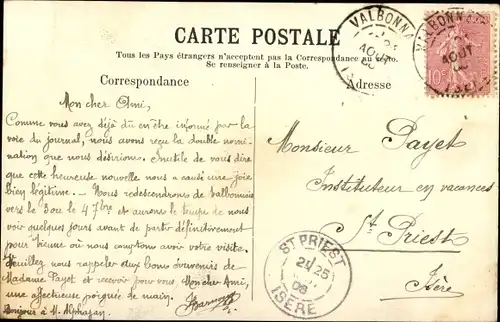 CARTE POSTALE
Tous les Pays étrangers n'acceptent pas la Correspondance au
Se renseigner à la Poste.
Correspondance
Adresse
VALBONNAIS
AOUT
VALBONNAIS
AOUT
ISERE
10
Mon cher Ami,
Comme vous avez déjà dû en être informé par la
voie du journal, nous avons reçu la double nomi-
nation que nous désirions. Inutile de vous dire
que cette heureuse nouvelle nous a causé une joie
bien légitime. - Nous redescendrons de Valbonnais
vers le 3 ou le 4 7bre et aurons le temps de nous
voir quelques jours avant de partir définitivement
pour où nous comptons avoir votre visite.
Veuillez nous rappeler aux bons souvenirs de
Madame Payet et recevoir pour vous, Mon cher Ami,
une affectueuse poignée de main.
Bonjour à M.
Monsieur Payet
Instituteur en vacances
St Priest
Isère
ST PRIEST
21 25
06
ISÈRE